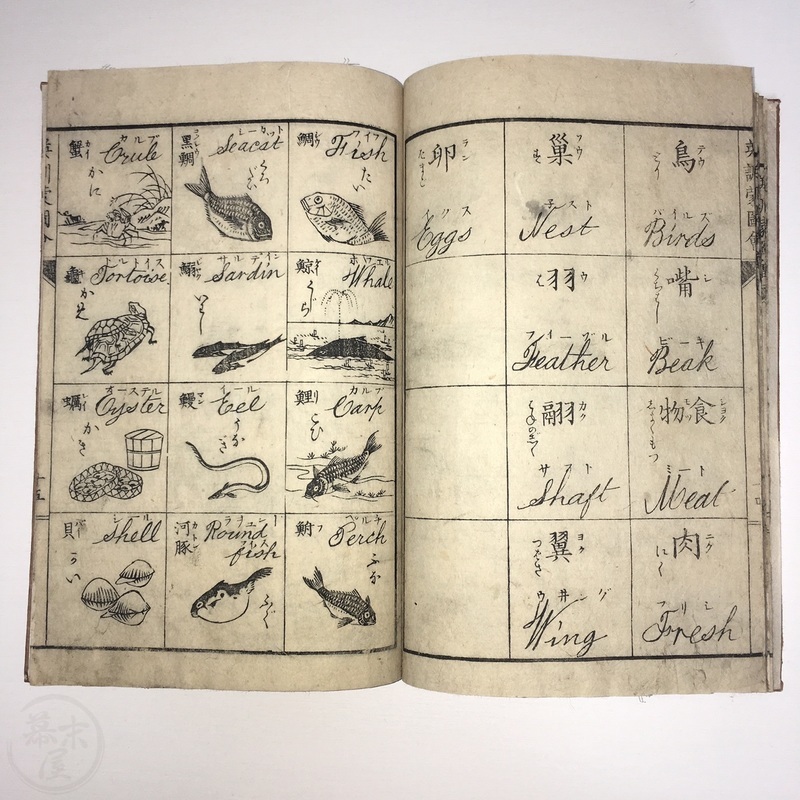 鳥 テウ
とり
バイルズ
Birds
嘴 シ
くちばし
ビーキ
Beak
食物 ショク モツ
しよくもつ
ミート
Meat
肉 ニク
にく
フリシ
Fresh
巣 フウ
す
子スト
Nest
羽 ウ
は
フイーブル
Feather
翮 カク
サフト
Shaft
翼 ヨク
つばさ
ウ井ング
Wing
卵 ラン
たまご
エグス
Eggs
鯛
たい
Fish
鯨 ケイ
くじら
ホウエル
Whale
鯉 リ
こひ
カルプ
Carp
鮒 フ
ふな
ペルキ
Perch
黒鯛
くろだい
レーカット
Seacat
鰯
いわし
サルデイン
Sardin
鰻 マン
うなぎ
イール
Eel
河豚 カトン
ふぐ
Round fish
蟹 カイ
かに
カルブ
Crule
かめ
トルトイス
Tortoise
蠣 レイ
かき
オーステル
Oyster
貝
かい
シール
Shell
幕末屋